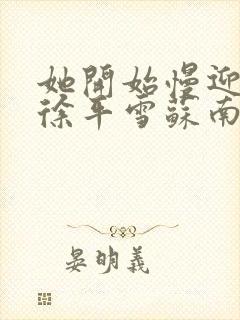 她開始慢迎
徐平雪蘇南
晏明義